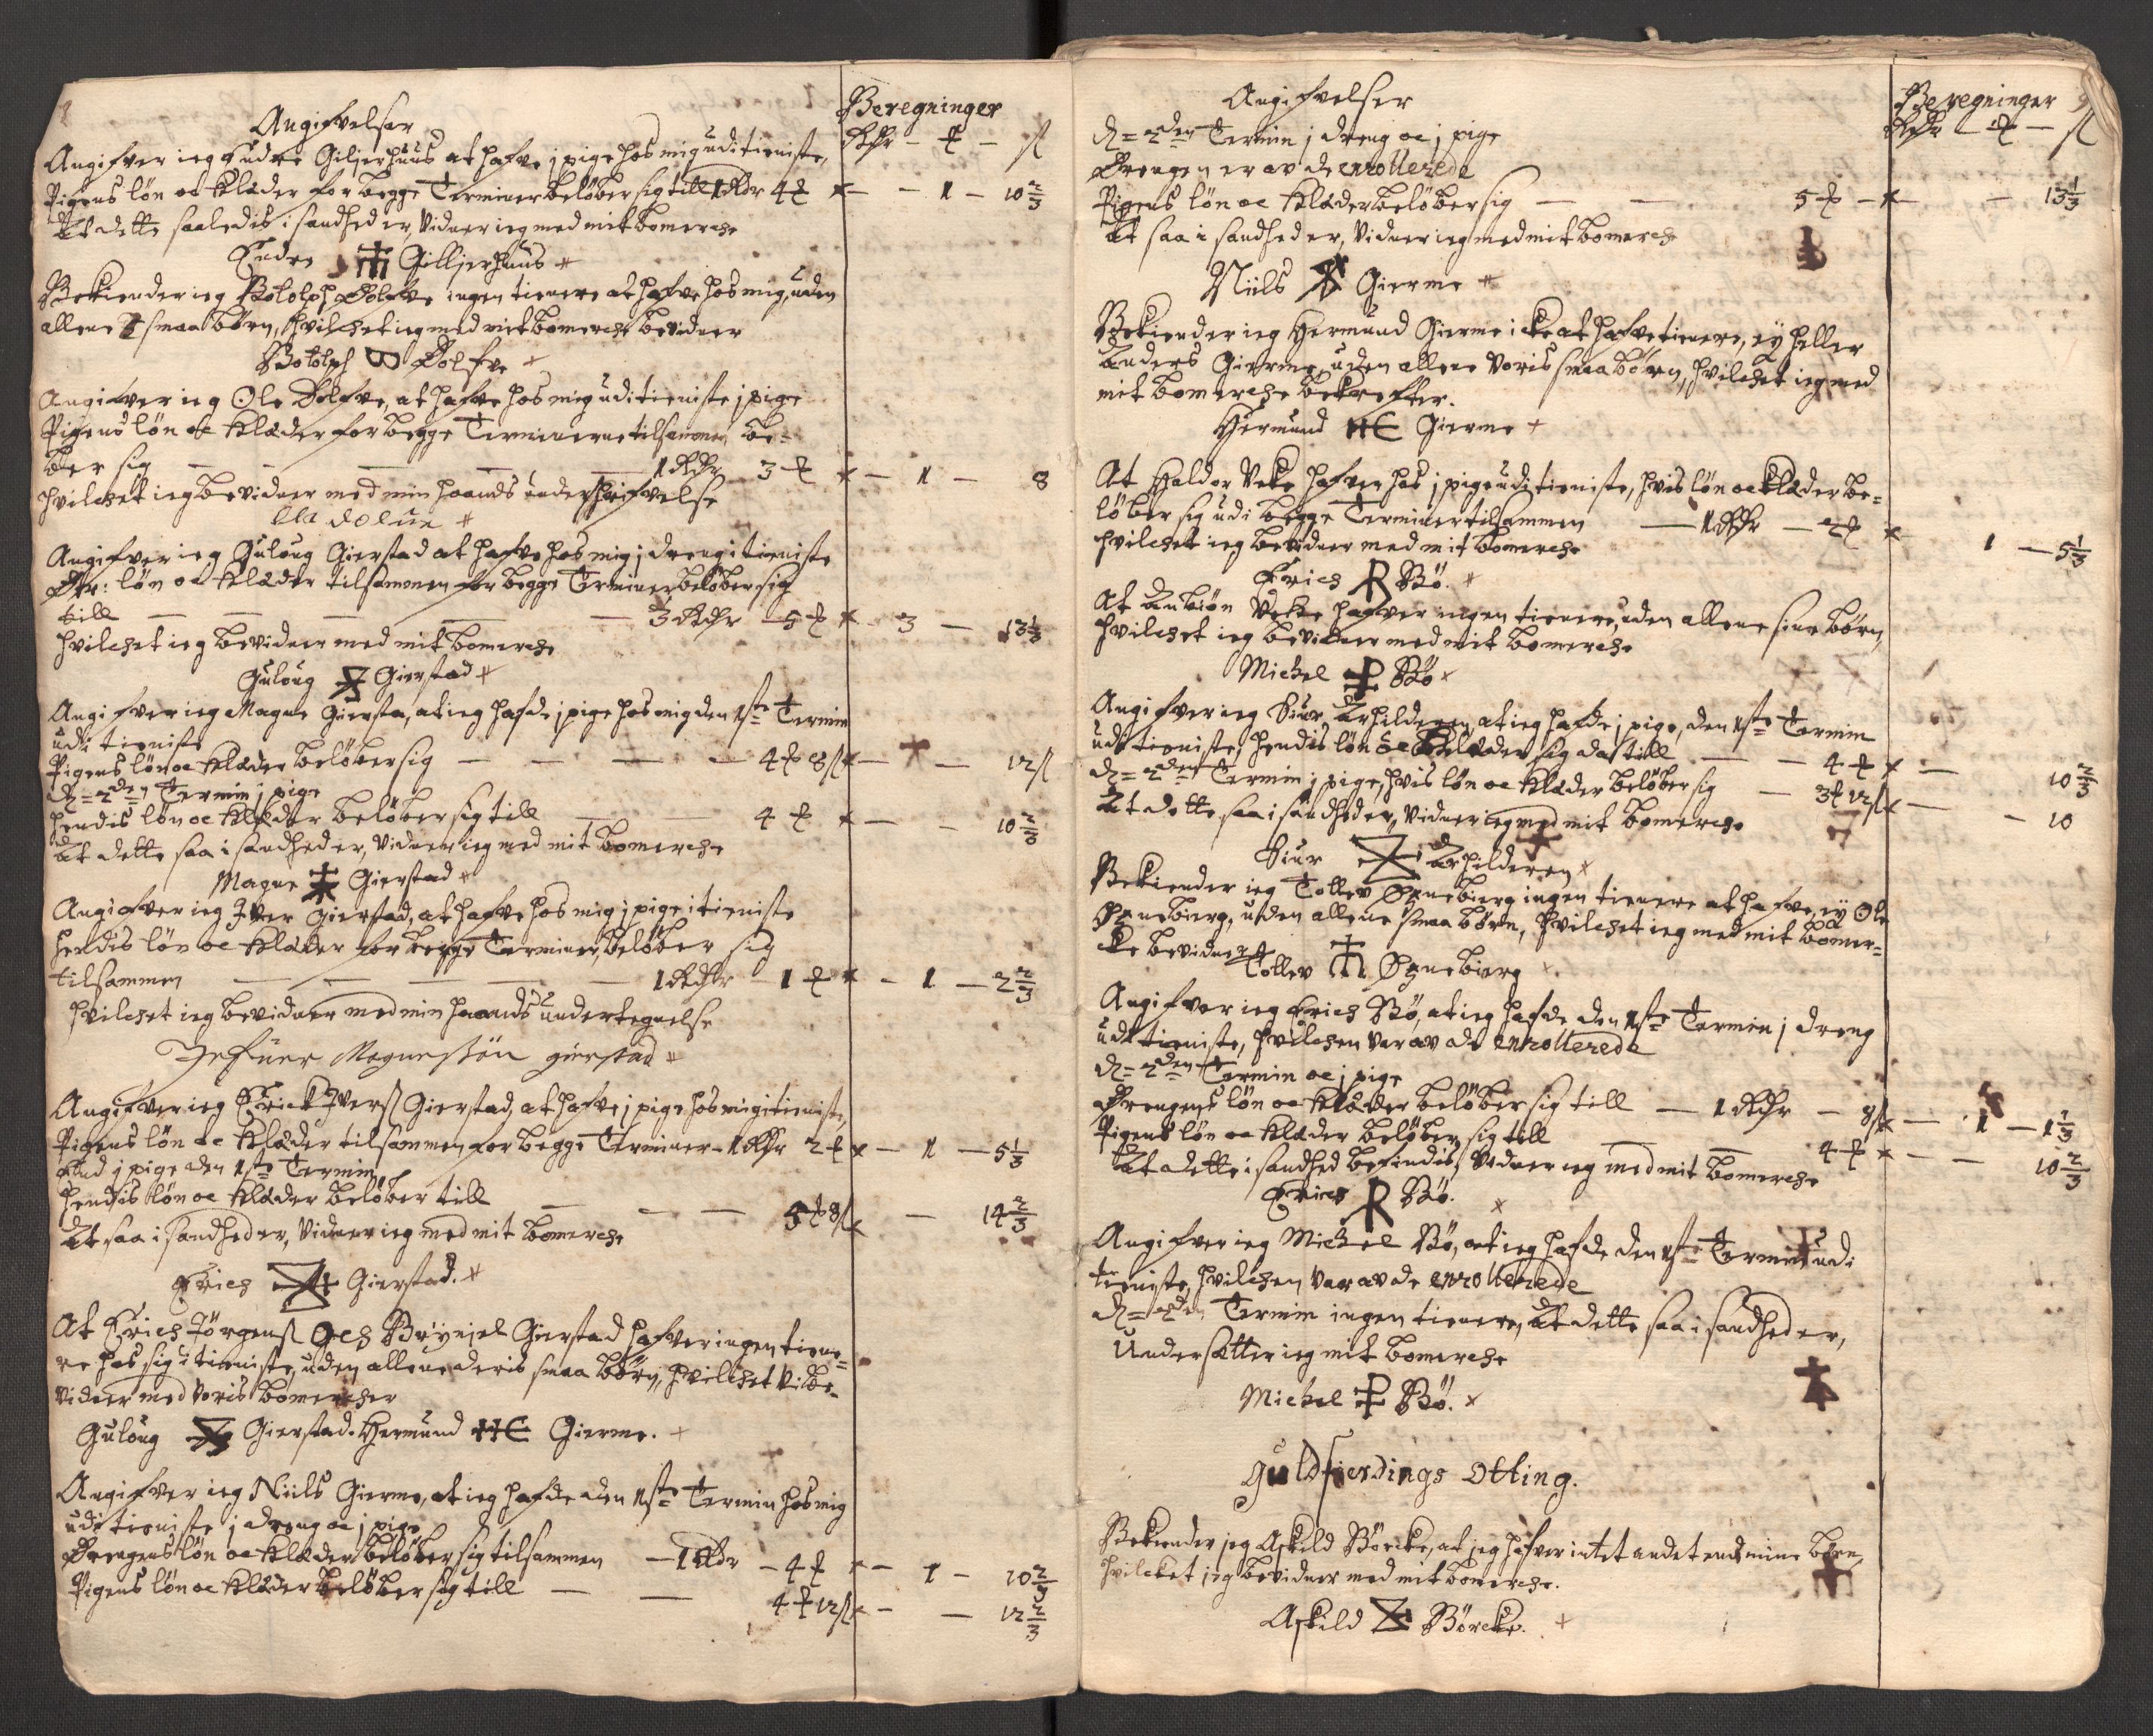 Angifvelser
Beregninger
Rdr — ℔ — ß
Angifver ieg Endre Giljerhuus at hafve j pige hos mig udi tieniste,
Pigens løn oc klæder for begge Terminer beløber sig till 1 Rdr 4 ℔ × — 1 — 10 2/3
At dette saaledis i sandhed er, vidner ieg med mit bomerche
Endre Gilljerhuus
Bekiender ieg Botolph Dolfve ingen tienere at hafve hos mig, uden
allene smaa børn, hvilchet ieg med mit bomerche bevidner
Botolph Dolfve
Angifver ieg Ole Dolfve, at hafve hos mig udi tieniste j pige
Pigens løn oc klæder for begge Terminerne tilsammen be-
løber sig — 1 Rdr 3 ℔ × — 1 — 8
hvilchet ieg bevidner med min haands underskrifvelse
Ola dolue
Angifver ieg Guloug Gierstad at hafve hos mig j dreng i tieniste
Dr: løn oc klæder tilsammen for begge Terminer beløber sig
till — 3 Rdr 5 ℔ × 3 — 13 1/3
hvilchet ieg bevidner med mit bomerche
Guloug Gierstad
Angifver ieg Magne Giersta, at ieg hafde j pige hos mig den 1ste Termin
udi tieniste
Pigens løn oc klæder beløber sig — 4 ℔ 8 ß × — 12 ß
D= 2den Termin j pige
hendis løn oc klæder beløber sig till — 4 ℔ × — 10 2/3
At dette saa i sandhed er, vidner ieg med mit bomerche
Magne Gierstad
Angifver ieg Iver Gierstad, at hafve hos mig j pige i tieniste
hendis løn oc klæder for begge Terminer, beløber sig
tilsammen — 1 Rdr — 1 ℔ × — 1 — 2 2/3
hvilchet ieg bevidner med min haands undertegnelse
Jefuer Magnessøn gierstad
Angifver ieg Erick Iverß Gierstad, at hafve j pige hos mig i tieniste,
Pigens løn oc klæder tilsammen for begge Terminer — 1 Rdr 2 ℔ × — 1 — 5 1/3
End j pige den 1ste Termin
hendis løn oc klæder beløber till — 5 ℔ 8 ß × — 14 2/3
At saa i sandhed er, vidner ieg med mit bomerche
Erich Gierstad.
At Erich Jørgenß och Brynjel Gierstad hafver ingen tiene-
re hos sig i tieniste, uden allene deris smaa børn, hvilchet vi be-
vidner med voris bomercher
Guloug Gierstad. Hermund HE Gierme.
Angifver ieg Niils Gierme, at ieg hafde den 1ste Termin hos mig
udi tieniste j dreng oc j pige
Drengens løn oc klæder beløber sig tilsammen — 1 Rdr — 4 ℔ × — 1 — 10 2/3
Pigens løn oc klæder beløber sig till — 4 ℔ 12 ß × — 12 2/3
Angifvelser
Beregninger 9
Rdr — ℔ — ß
D= 2den Termin j dreng oc j pige
Drengen er av de enrollerede
Pigens løn oc klæder beløber sig — 5 ℔ × — 13 1/3
At saa i sandhed er, vidner ieg med mit bomerche
Niils Gierme
Bekiender ieg Hermund Gierme icke at hafve tienere, ey heller
Anders Gierme, uden allene voris smaa børn, hvilchet ieg med
mit bomerche bekrefter.
Hermund HE Gierme
At Haldor Veke hafver hos j pige udi tieniste, hvis løn oc klæder be-
løber sig udi begge Terminer tilsammen — 1 Rdr — 2 ℔ × 1 — 5 1/3
hvilchet ieg bevidner med mit bomerche
Erich Bø.
At Anbiøn Veke hafver ingen tienere, uden allene sine børn,
hvilchet ieg bevidner med mit bomerche
Michel Bø
Angifver ieg Siur Arhilderen, at ieg hafde j pige, den 1ste Termin
udi tieniste, hendis løn oc klæder sig da till — 4 ℔ × — 10 2/3
D= 2den Termin j pige, hvis løn oc klæder beløber sig — 3 ℔ 12 ß × — 10
At dette saa i sandhed er, vidner ieg med mit bomerche
Siur Arhilderen
Bekiender ieg Tollev Øynebierg ingen tienere at hafve, ey Ole
Øynebierg, uden allene smaa børn, hvilchet ieg med mit bomer-
ke bevidner
Tollev Øynebierg
Angifver ieg Erich Bø, at ieg hafde den 1ste Termin j dreng
udi tieniste, hvilchen var av de enrollerede
D= 2den Termin oc j pige
Drengens løn oc klæder beløber sig till — 1 Rdr — 8 ß × — 1 — 1 1/3
Pigens løn oc klæder beløber sig till — 4 ℔ × — 10 2/3
At dette i sandhed befindis, vidner ieg med mit bomerche
Erich Bø.
Angifver ieg Michel Bø, at ieg hafde den 1ste Termin j udi
tieniste, hvilchen var av de enrollerede
D= 2den Termin ingen tienere, At dette saa i sandhed er,
Undersætter ieg mit bomerche
Michel Bø.
Guldfierdings Otting.
Bekiender jeg Askild Børcke, at jeg hafver intet andet end mine børn,
hvilcket jeg bevidner med mit bomerche.
Askild Børcke.